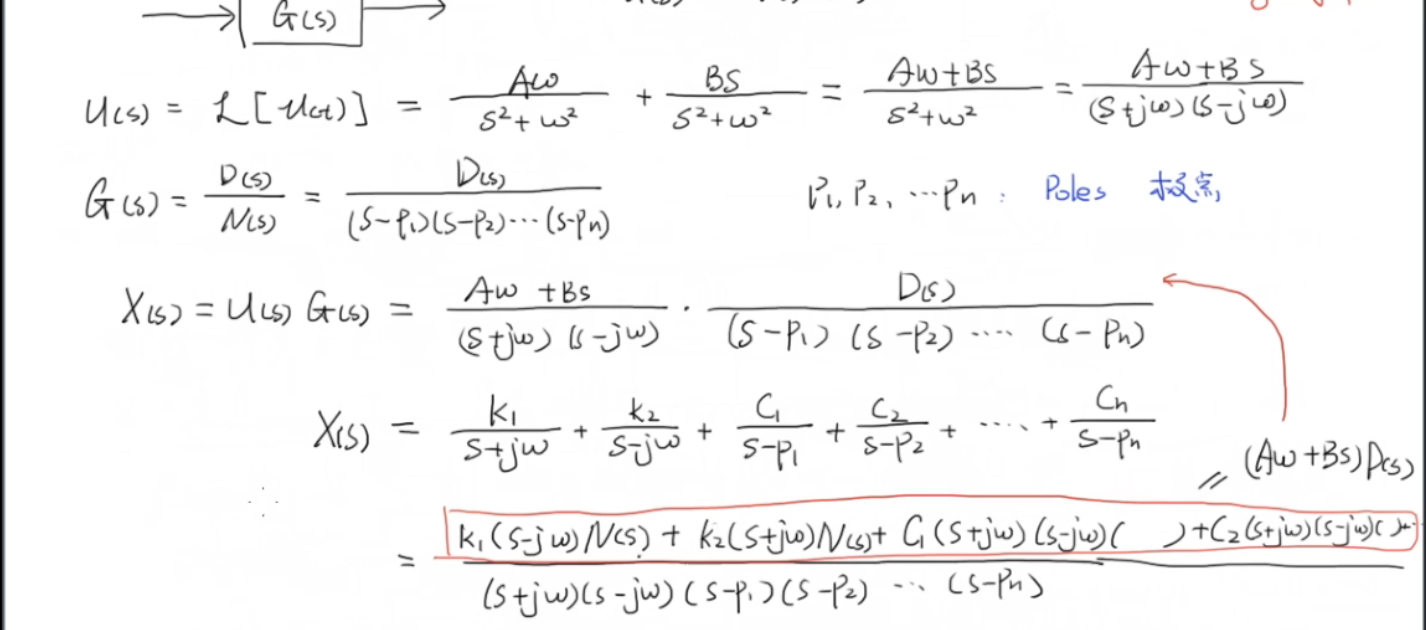 G(s)
U(s) = ℒ[u(t)] = Aω/(s²+ω²) + BS/(s²+ω²) = (Aω+BS)/(s²+ω²) = (Aω+BS)/((s+jω)(s-jω))
G(s) = D(s)/N(s) = D(s)/((s-p₁)(s-p₂)⋯(s-pn)) P₁, P₂, ⋯Pn : Poles 极点
X(s) = U(s) G(s) = (Aω+BS)/((s+jω)(s-jω)) · D(s)/((s-p₁)(s-p₂)⋯(s-pn))
X(s) = k₁/(s+jω) + k₂/(s-jω) + C₁/(s-p₁) + C₂/(s-p₂) + ⋯ + Cn/(s-pn)
= (Aω+BS)D(s)
= (k₁(s-jω)N(s) + k₂(s+jω)N(s) + C₁(s+jω)(s-jω)( ) + C₂(s+jω)(s-jω)( )+)/((s+jω)(s-jω)(s-p₁)(s-p₂)⋯(s-pn))